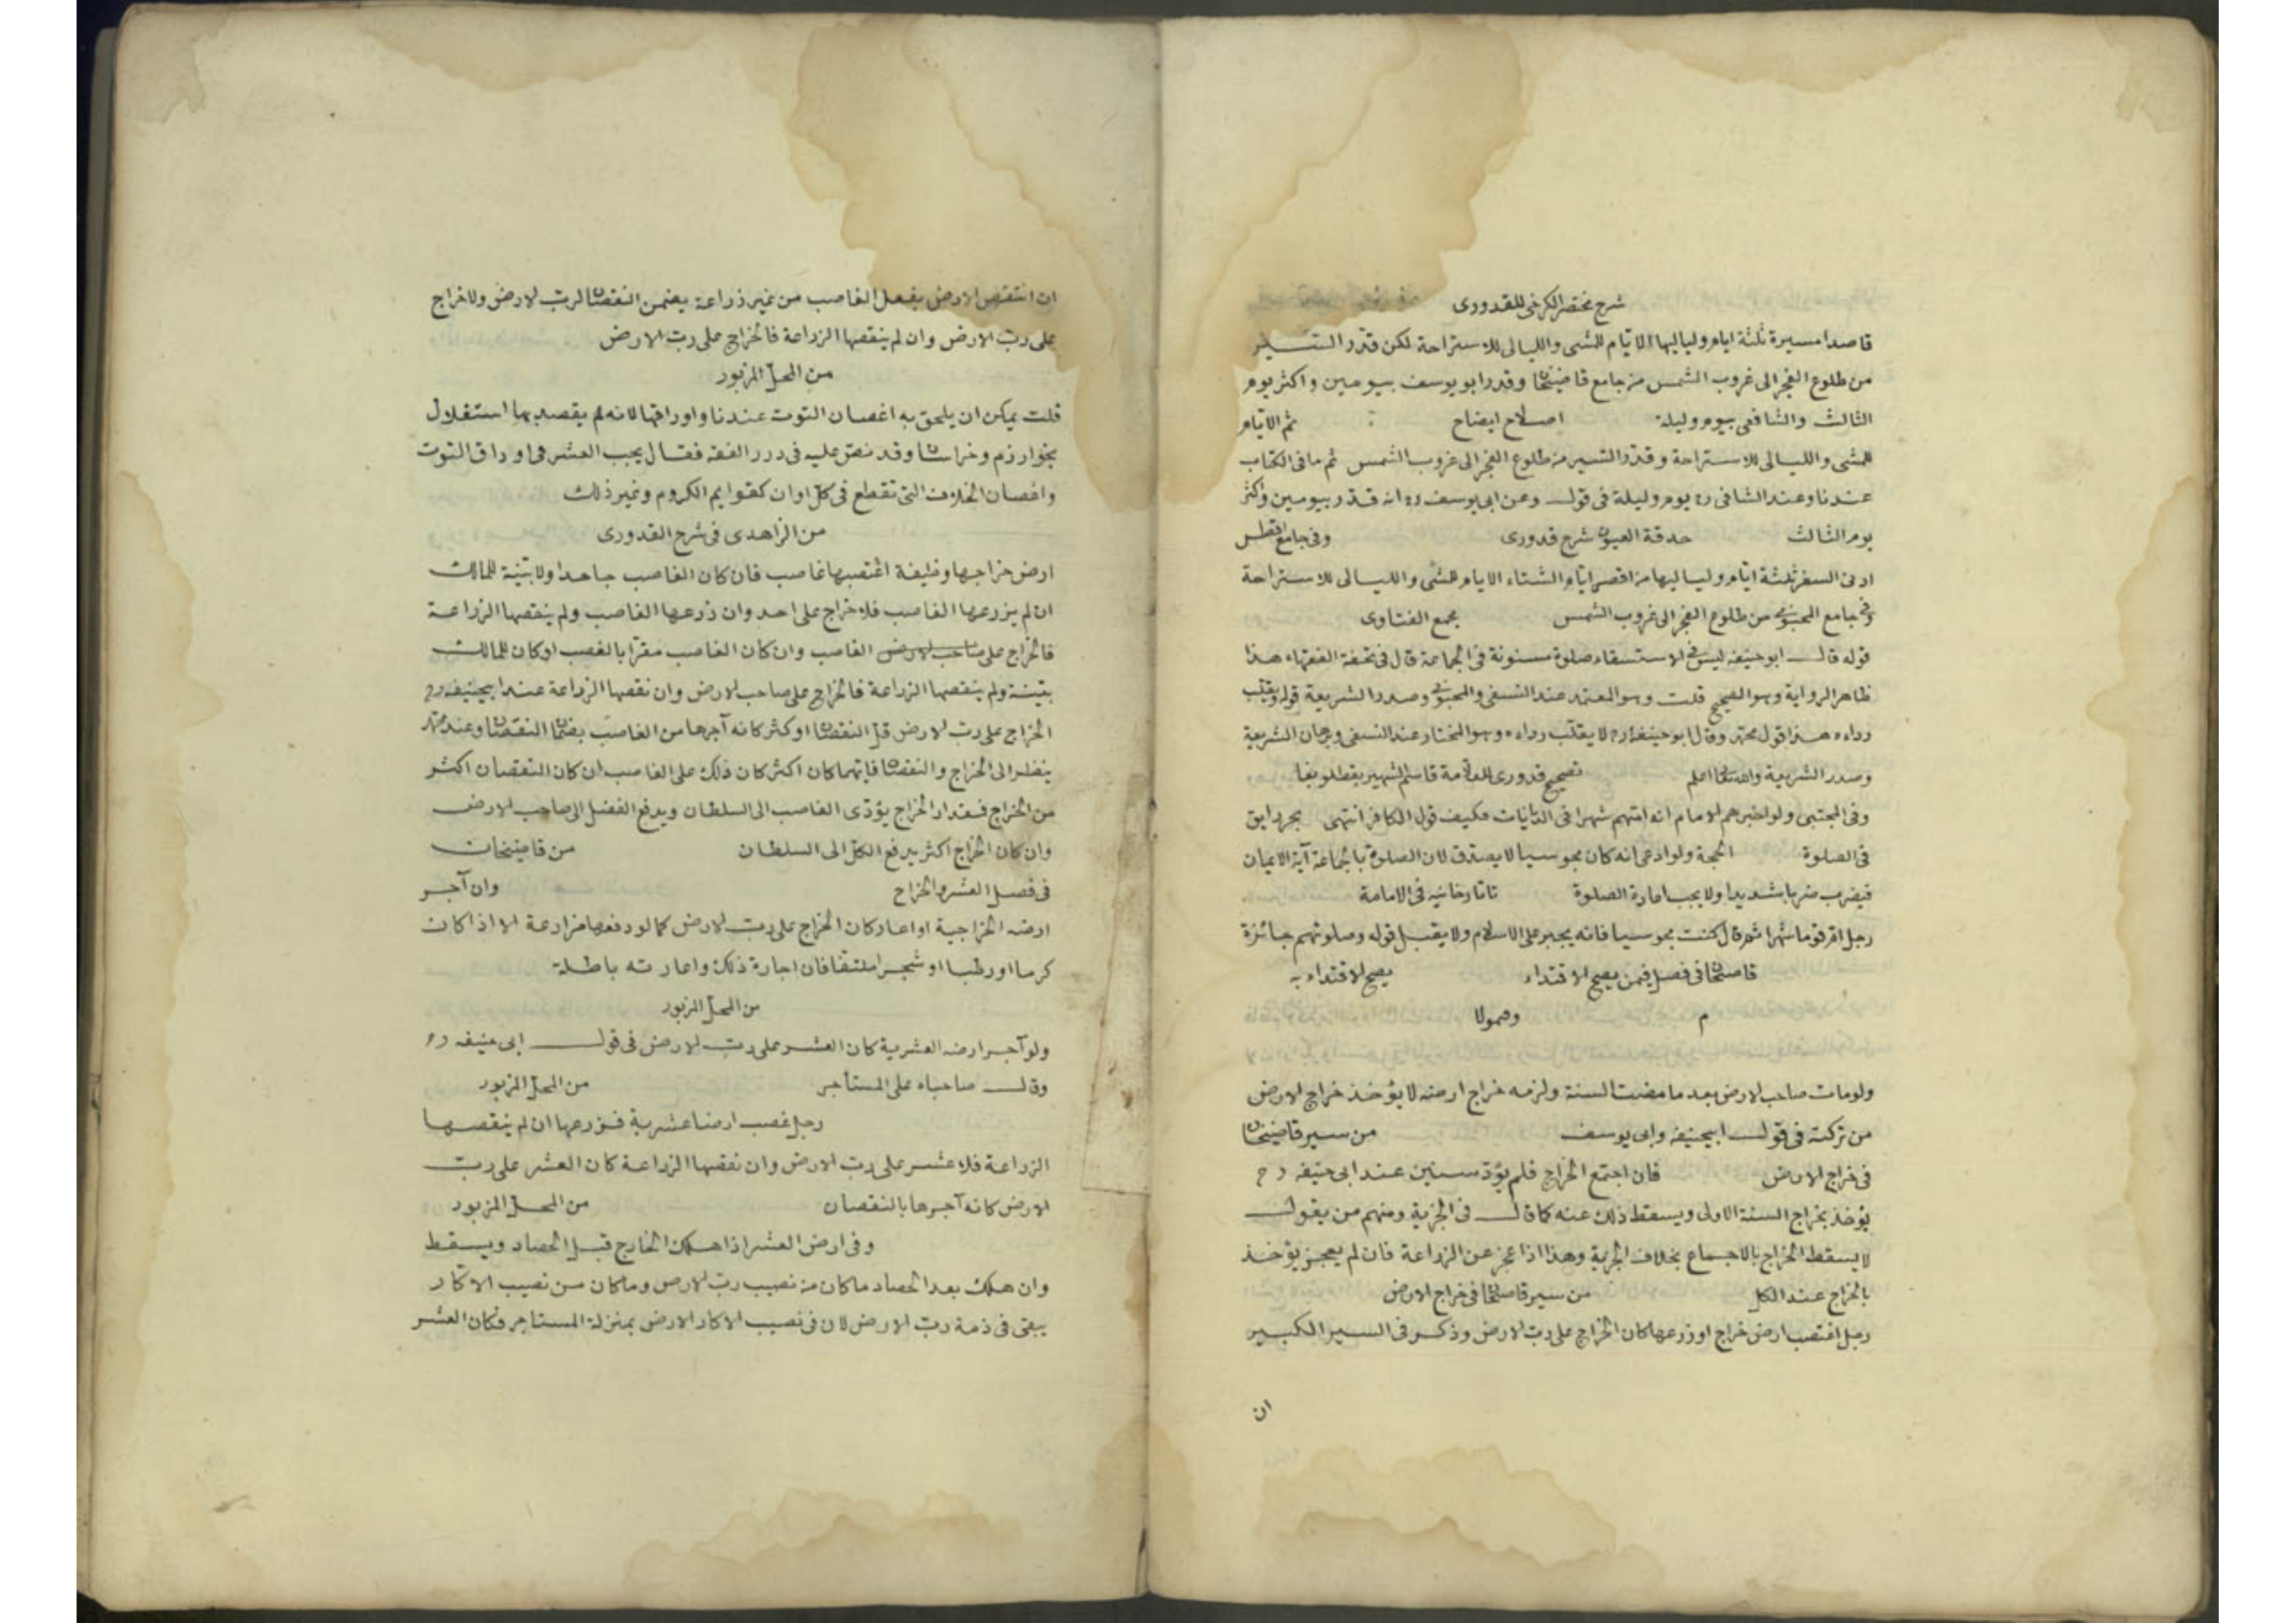 شرح مختصر الكرخى للقدورى
قاصدا مسيرة ثلثة ايام ولياليها الايام للمشى والليالى للاستراحة لكن قدر السير
من طلوع الفجر الى غروب الشمس من جامع قاضيخان وقدر ابو يوسف بيومين واكثر يوم
الثالث والشافعى بيوم وليلة اصلاح ايضاح ثم الايام
للمشى والليالى للاستراحة وقدر السير من طلوع الفجر الى غروب الشمس ثم ما فى الكتاب
عندنا وعند الشافعى ره يوم وليلة فى قول وعن ابى يوسف ره انه قدر بيومين واكثر
يوم الثالث حدقة العيون شرح قدورى وفى جامع
ادنى السفر ثلثة ايام ولياليها من اقصر ايام الشتاء الايام للمشى والليالى للاستراحة
وفى جامع المحبوبى من طلوع الفجر الى غروب الشمس مجمع الفتاوى
قوله قال ابو حنيفه ليس فى الاستسقاء صلوة مسنونة فى الجماعة قال فى تحفة الفقهاء هذا
ظاهر الرواية وهو الصحيح قلت وهو المعتمد عند النسفى والمحبوبى وصدر الشريعة قوله ويقلب
رداءه هذا قول محمد وقال ابو حنيفة ره لا يقلب رداءه وهو المختار عند النسفى وبرهان الشريعة
وصدر الشريعة والله تعالى اعلم تصحيح قدورى للعلامة قاسم الشهير بقطلوبغا
وفى المجتبى ولو اخبرهم الامام انه امهم شهرا فى فكيف قول الكافر انتهى بحر رايق
فى الصلوة الحجة ولو ادعى انه كان مجوسيا لا يصدق لان الصلوة بالجماعة آية الايمان
فيضرب ضربا شديدا ولا يجب اعادة الصلوة تاتارخانيه فى الامامة
رجل اقر قوما شهرا ثم قال كنت مجوسيا فانه يجبر على الاسلام ولا يقبل قوله وصلوتهم جائزة
قاضيخان فى فصل فيمن يصح الاقتداء يصح الاقتداء به
م وممولا
ولو مات صاحب الارض بعد ما مضت السنة ولزمه خراج ارضه لا يؤخذ خراج الارض
من تركته فى قول ابيحنيفه وابى يوسف من سير قاضيخان
فى خراج الارض فان اجتمع الخراج فلم يؤد سنين عند ابى حنيفه رح
يؤخذ بخراج السنة الاولى ويسقط ذلك عنه كما قال فى الجزية ومنهم من يقول
لا يسقط الخراج بالاجماع بخلاف الجزية وهذا اذا عجز عن الزراعة فان لم يعجز يؤخذ
بالخراج عند الكل من سير قاضيخان فى خراج الارض
رجل اغتصب ارض خراج او زرعها كان الخراج على رب الارض وذكر فى السير الكبير
ان
ان انتقص الارض بفعل الغاصب من غير زراعة يضمن النقصان لرب الارض ولا خراج
على رب الارض وان لم ينقصها الزراعة فالخراج على رب الارض
من المحل المزبور
قلت يمكن ان يلحق به اغصان التوت عندنا واوراقها لانه لم يقصد بها استغلال
بخوارزم وخراسان وقد نص عليه فى درر الفقه فقال يجب العشر فى اوراق التوت
واغصان الخلاف التى تقطع فى كل اوان كقوايم الكروم وغير ذلك
من الزاهدى فى شرح القدورى
ارض خراجها وظيفة اغتصبها غاصب فان كان الغاصب جاحدا ولا بينة للمالك
ان لم يزرعها الغاصب فلا خراج على احد وان زرعها الغاصب ولم ينقصها الزراعة
فالخراج على صاحب الارض الغاصب وان كان الغاصب مقرا بالغصب او كان للمالك
بينة ولم ينقصها الزراعة فالخراج على صاحب الارض وان نقصها الزراعة عند ابيحنيفه رح
الخراج على رب الارض قل النقصان او كثر كانه آجرها من الغاصب بضمان النقصان وعند محمد
ينظر الى الخراج والنقصان فايهما كان اكثر كان ذلك على الغاصب ان كان النقصان اكثر
من الخراج فمقدار الخراج يؤدى الغاصب الى السلطان ويدفع الفضل الى صاحب الارض
وان كان الخراج اكثر يدفع الكل الى السلطان من قاضيخان
فى فصل العشر والخراج وان آجر
ارضه الخراجية او اعار كان الخراج على رب الارض كما لو دفعها مزارعة الا اذا كان
كرما او رطبا او شجرا ملتفا فان اجارة ذلك واعارته باطلة
من المحل المزبور
ولو آجر ارضه العشرية كان العشر على رب الارض فى قول ابى حنيفه ره
وقال صاحباه على المستأجر من المحل المزبور
رجل غصب ارضا عشرية فزرعها ان لم ينقصها
الزراعة فلا عشر على رب الارض وان نقصها الزراعة كان العشر على رب
الارض كانه آجرها بالنقصان من المحل المزبور
وفى ارض العشر اذا هلك الخارج قبل الحصاد ويسقط
وان هلك بعد الحصاد ما كان من نصيب رب الارض وما كان من نصيب الاكار
يبقى فى ذمة رب الارض لان فى نصيب الاكار الارض بمنزلة المستاجر فكان العشر